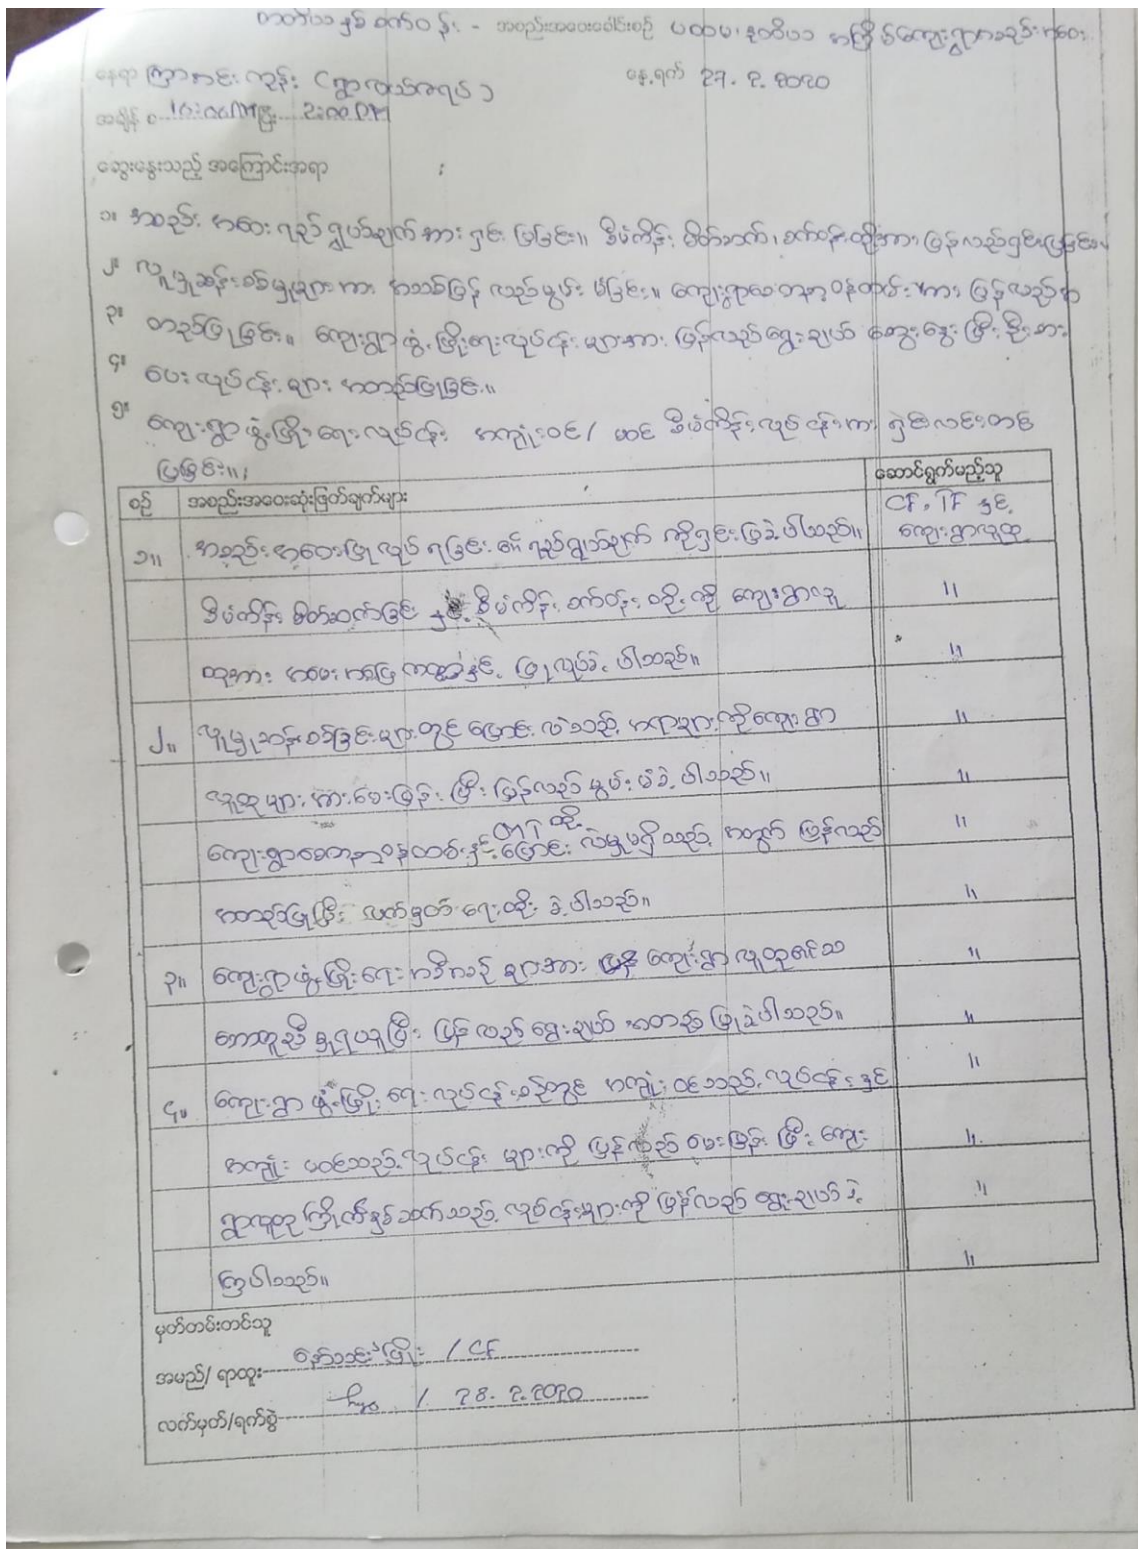 တတိယနှစ်စက်ဝန်း - အစည်းအဝေးခေါင်းစဉ် ပထမ၊ ဒုတိယ အကြိမ်ကျေးရွာအစည်းအဝေး
နေရာ ကြာအင်းကုန်း (ရွာလယ်ဇရပ်) နေ့ရက် 27. 2. 2020
အချိန် 10:00AM မှ 2:00 PM
ဆွေးနွေးသည့် အကြောင်းအရာ :
၁။ အစည်း အဝေး ရည်ရွယ်ချက်အား ရှင်းပြခြင်း။ စီမံကိန်း မိတ်ဆက်၊ စက်ဝန်းထိုးအား ပြန်လည်ရှင်းပြခြင်း။
၂။ လူမှုဆန်းစစ်မှုများအား အသစ်ပြန်လည်မွမ်းမံခြင်း။ ကျေးရွာစေတနာ့ဝန်ထမ်းအား ပြန်လည်အ
၃။ တည်ပြုခြင်း။ ကျေးရွာဖွံ့ဖြိုးရေးလုပ်ငန်းများအား ပြန်လည်ရွေးချယ် ဆွေးနွေးပြီး ဦးစား
၄။ ပေးလုပ်ငန်းများ အတည်ပြုခြင်း။
၅။ ကျေးရွာဖွံ့ဖြိုးရေးလုပ်ငန်း အကျုံးဝင် / မဝင် စီမံကိန်းလုပ်ငန်းအား ရှင်းလင်းတင်
ပြခြင်း။
စဉ် အစည်းအဝေးဆုံးဖြတ်ချက်များ ဆောင်ရွက်မည့်သူ
၁။ အစည်းအဝေးပြုလုပ်ရခြင်း၏ ရည်ရွယ်ချက်ကိုရှင်းပြခဲ့ပါသည်။ CF, TF နှင့် ကျေးရွာလူထု
စီမံကိန်းမိတ်ဆက်ခြင်း နှင့် စီမံကိန်း စက်ဝန်း ကို ကျေးရွာလူ "
ထုအား ပြုလုပ်ခဲ့ပါသည်။ "
၂။ လူမှုဆန်းစစ်ခြင်းများတွင် ပြောင်းလဲသည့် အရာများကိုကျေးရွာ "
လူထုများအားမေးမြန်းပြီး ပြန်လည်မွမ်းမံခဲ့ပါသည်။ "
ကျေးရွာစေတနာ့ဝန်ထမ်းနှင့် ပြောင်းလဲမှုမရှိသည့်အတွက် ပြန်လည် "
အတည်ပြုပြီး လက်မှတ်ရေးထိုးခဲ့ပါသည်။ "
၃။ ကျေးရွာဖွံ့ဖြိုးရေးအစီအစဉ်များအား ကျေးရွာလူထု၏သ "
ဘောတူညီမှုရယူပြီး ပြန်လည်ရွေးချယ် အတည်ပြုခဲ့ပါသည်။ "
၄။ ကျေးရွာဖွံ့ဖြိုးရေးလုပ်ငန်းစဉ်တွင် အကျုံးဝင်သည့်လုပ်ငန်းနှင့် "
အကျုံးမဝင်သည့်လုပ်ငန်းများကို ပြန်လည်မေးမြန်းပြီး ကျေး "
ရွာလူထုကြိုက်နှစ်သက်သည့် လုပ်ငန်းများကို ပြန်လည်ရွေးချယ်ခဲ့ "
ကြပါသည်။ "
မှတ်တမ်းတင်သူ
အမည်/ ရာထူး / CF
လက်မှတ်/ရက်စွဲ / 28. 2. 2020